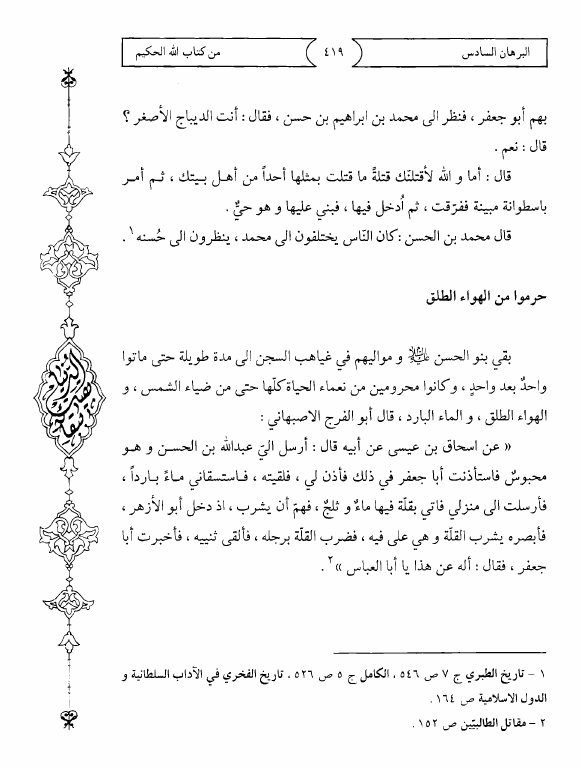 البرهان السادس ٤١٩ من كتاب الله الحكيم
بهم أبو جعفر ، فنظر الى محمد بن ابراهيم بن حسن ، فقال : أنت الديباج الأصغر ؟
قال : نعم .
قال : أما و الله لأقتلنّك قتلةً ما قتلت بمثلها أحداً من أهل بيتك ، ثم أمر
باسطوانة مبينة ففرّقت ، ثم اُدخل فيها ، فبني عليها و هو حيٌّ .
قال محمد بن الحسن : كان النّاس يختلفون الى محمد ، ينظرون الى حُسنه ١.
حرموا من الهواء الطلق
بقي بنو الحسن و مواليهم في غياهب السجن الى مدة طويلة حتى ماتوا
واحدٌ بعد واحدٍ ، وكانوا محرومين من نعماء الحياة كلّها حتى من ضياء الشمس ، و
الهواء الطلق ، و الماء البارد ، قال أبو الفرج الاصبهاني :
« عن اسحاق بن عيسى عن أبيه قال : أرسل اليّ عبدالله بن الحسن و هو
محبوسٌ فاستأذنت أبا جعفر في ذلك فأذن لي ، فلقيته ، فاستسقاني ماءً بارداً ،
فأرسلت الى منزلي فاتي بقلّة فيها ماءٌ و ثلجٌ ، فهمّ أن يشرب ، اذ دخل أبو الأزهر ،
فأبصره يشرب القلّة و هي على فيه ، فضرب القلّة برجله ، فألقى ثنييه ، فأخبرت أبا
جعفر ، فقال : أله عن هذا يا أبا العباس » ٢ .
١ - تاريخ الطبري ج ٧ ص ٥٤٦ ، الكامل ج ٥ ص ٥٢٦ ، تاريخ الفخري في الآداب السلطانية و
الدول الاسلامية ص ١٦٤ .
٢ - مقاتل الطالبيّين ص ١٥٢ .